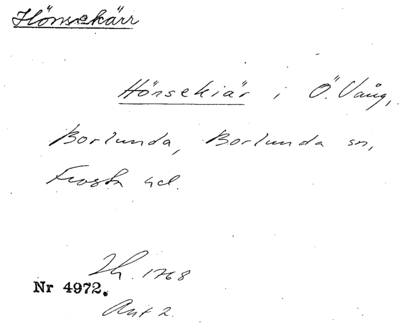 Hönsekärr
Hönsekiär i Ö. Vång,
Borlunda, Borlunda sn,
Frosta hd.
Lh. 1768
Nr 4972.
Akt 2.